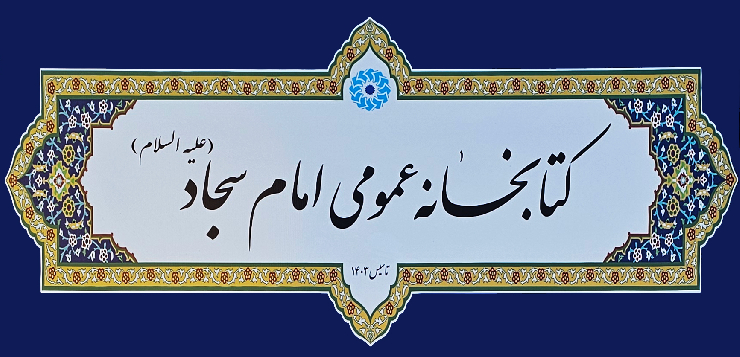 کتابخانه عمومی امام سجاد (علیه السلام)
تاسیس ۱۴۰۳